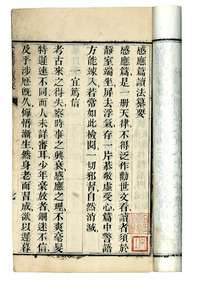 感應篇讀法纂要
感應篇是一冊天律不得泛作勸世文看讀者須於
靜室端坐屏去浮氣存一片恭敬虛受心篇中警語
方能竦入若常如此檢閱一切邪習自然消滅
一宜篤信
考古來之得失察時事之興衰感應之理不爽毫髮
特遲速不同而人未詳審耳少年豪放者錮迷不信
及乎涉歷既久侮悟漸生然身老而習成欲以遲暮